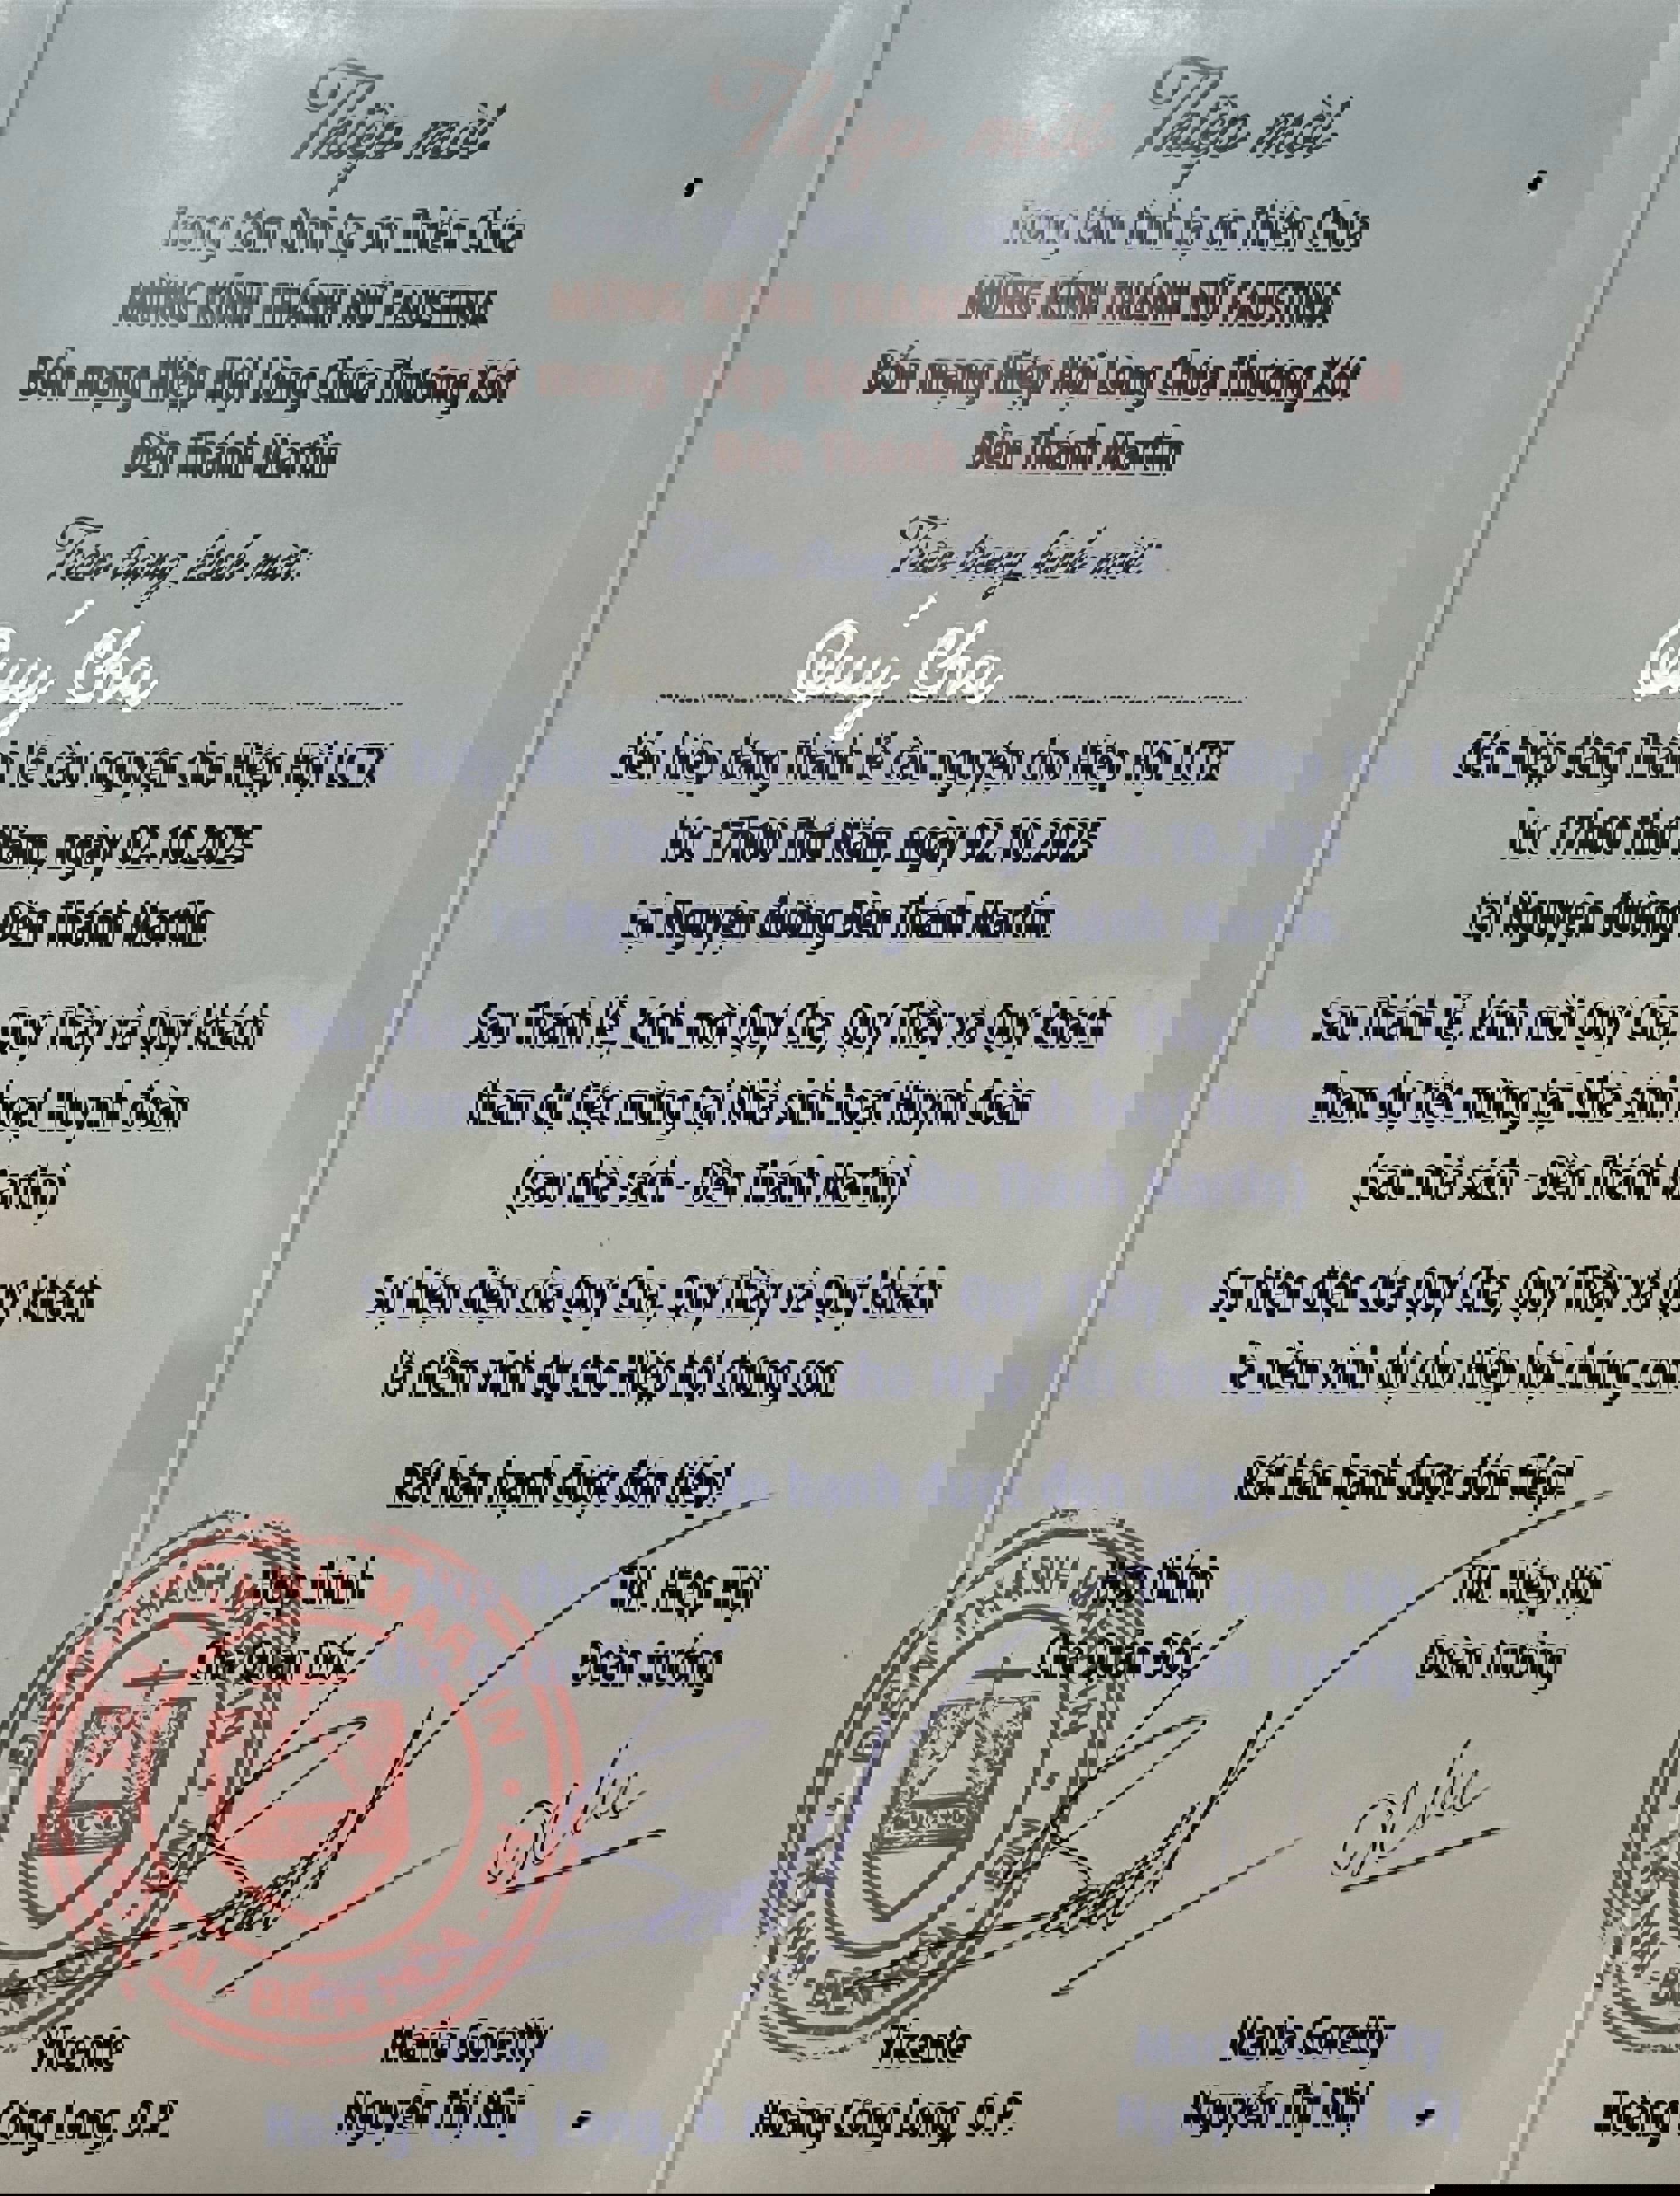 Thiệp mời
Trong tâm tình tạ ơn Thiên Chúa
MỪNG KÍNH THÁNH NỮ FAUSTINA
Bổn mạng Hiệp Hội Lòng Chúa Thương Xót
Đền Thánh Martin
Trân trọng kính mời:
Quý Cha
đến hiệp dâng Thánh lễ cầu nguyện cho Hiệp Hội LCTX
lúc 17h00 Thứ Năm, ngày 02.10.2025
tại Nguyện đường Đền Thánh Martin
Sau Thánh lễ, kính mời Quý Cha, Quý Thầy và Quý khách
tham dự tiệc mừng tại Nhà sinh hoạt Huynh đoàn
(sau nhà sách - Đền Thánh Martin)
Sự hiện diện của Quý Cha, Quý Thầy và Quý khách
là niềm vinh dự cho Hiệp hội chúng con
Rất hân hạnh được đón tiếp!
Hợp thính TM. Hiệp Hội
Cha Quản Đốc Đoàn trưởng
THÁNH MARTIN
BIÊN HÒA
Vicente Maria Goretty
Hoàng Công Long, O.P. Nguyễn Thị Nhị